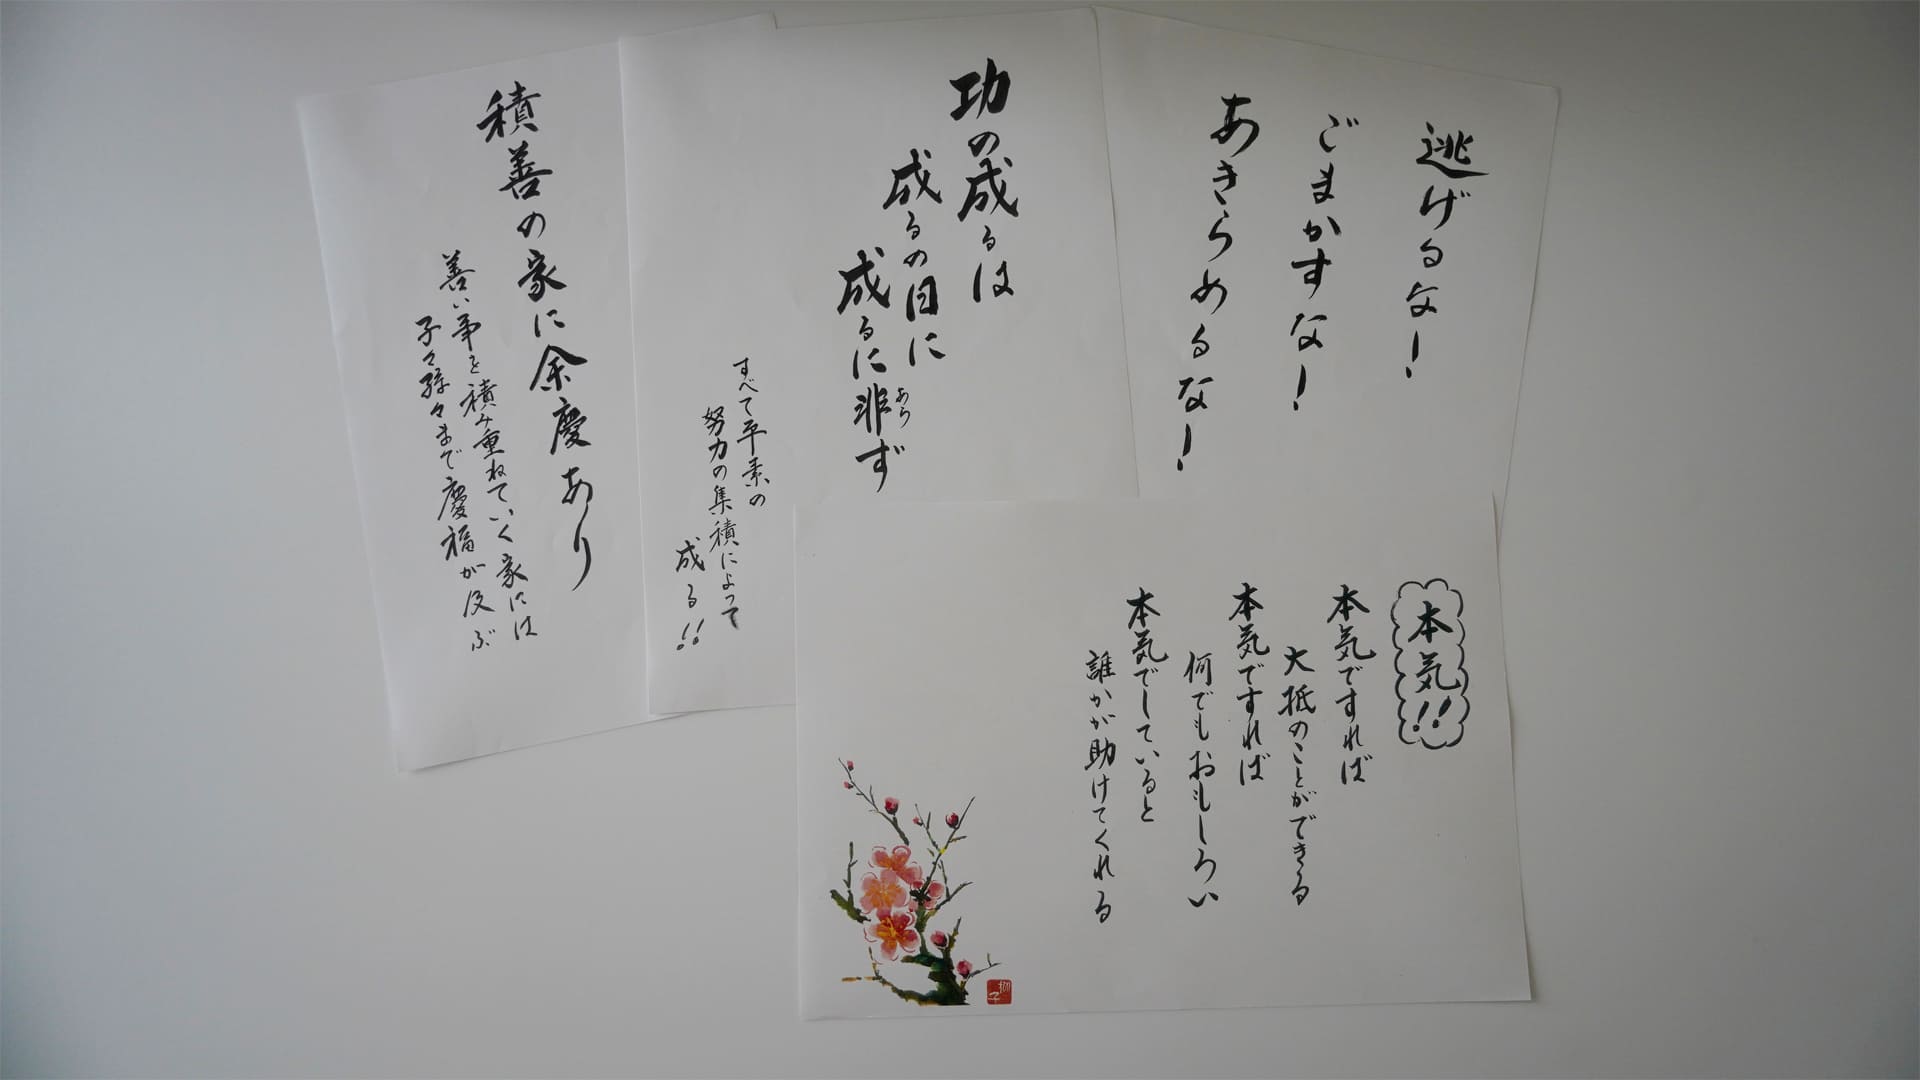 逃げるな！
ごまかすな！
あきらめるな！
功の成るは
成るの日に
成るに非ず
あら
すべて平素の
努力の集積によって
成る!!
積善の家に余慶あり
善い事を積み重ねていく家には
子々孫々まで慶福が及ぶ
本気!!
本気ですれば
大抵のことができる
本気ですれば
何でもおもしろい
本気でしていると
誰かが助けてくれる